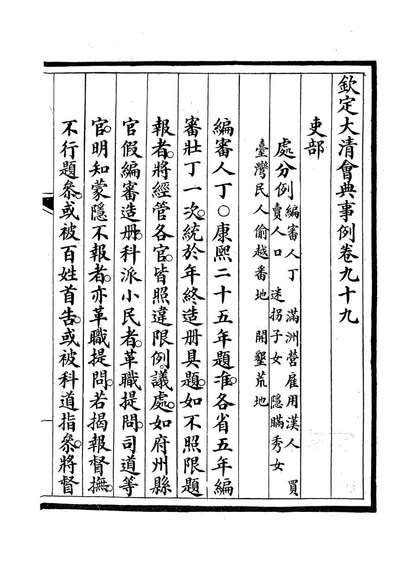 欽定大清會典事例卷九十九
吏部
處分例編審人丁　滿洲營雇用漢人　買
賣人口　迷拐子女　隱瞞秀女
臺灣民人偷越番地　開墾荒地
編審人丁○康熙二十五年題准。各省五年編
審壯丁一次。統於年終造册具題。如不照限題
報者。將經管各官。皆照違限例。議處。如府州縣
官假編審造册。科派小民者。革職提問。司道等
官。明知蒙隱不報者。亦革職提問。若揭報督撫。
不行題參。或被百姓首告。或被科道指參。將督